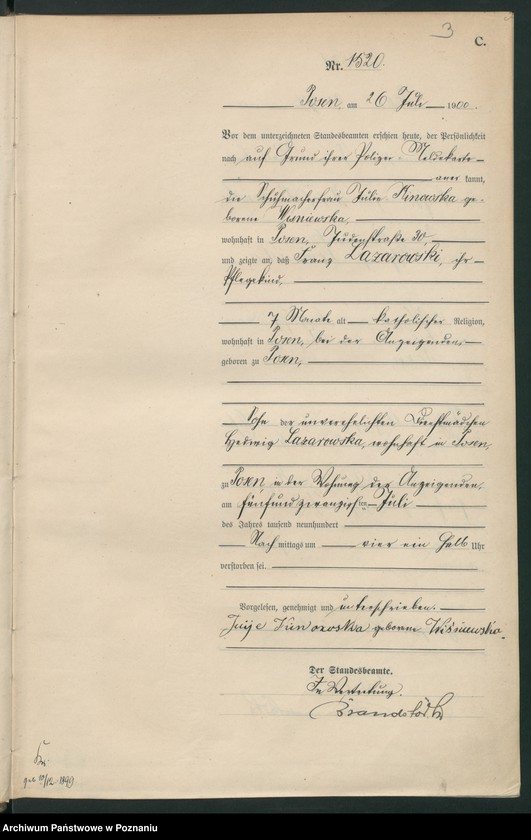 3
C.
Nr. 1520.
Posen, am 26 Juli 1900.
Vor dem unterzeichneten Standesbeamten erschien heute, der Persönlichkeit
nach auf Grund ihrer Polizei-Meldekarte
aner kannt,
die Schuhmacherfrau Julie Kunowska ge-
borene Wisniewska,
wohnhaft in Posen, Judenstraße 30,
und zeigte an, daß Franz Lazarowski, ihr
Pflegekind,
7 Monate alt katholischer Religion,
wohnhaft in Posen, bei der Anzeigenden
geboren zu Posen,
Sohn der unverehelichten Dienstmädchen
Hedwig Lazarowska, wohnhaft in Posen,
zu Posen in der Wohnung der Anzeigenden,
am fünfundzwanzigsten Juli
des Jahres tausend neunhundert
Nach mittags um vier ein halb Uhr
verstorben sei.
Vorgelesen, genehmigt und unterschrieben.
geborene Wiśniewska.
Der Standesbeamte.
In Vertretung.
geb. 10/12 1899
Archiwum Państwowe w Poznaniu